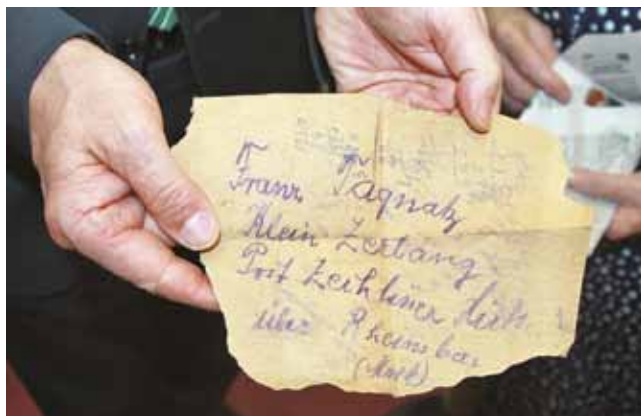 Franz Pagnatz
Klein Zerlang
Post Zechliner Hütt
über Rheinsber
(Mark)